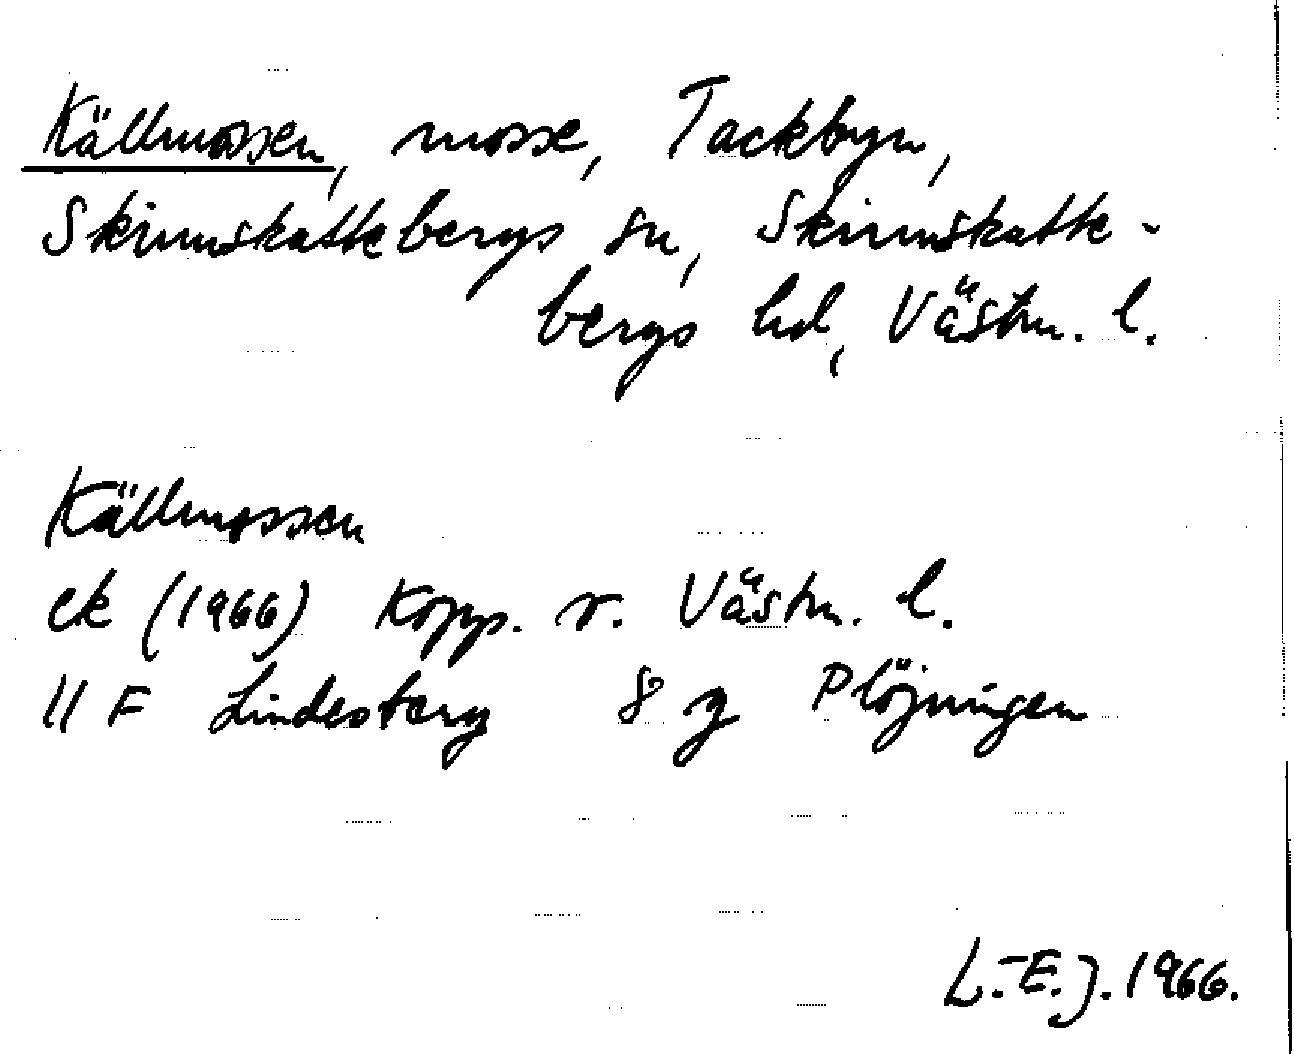 Källmossen, mosse, Tackbyn,
Skinnskattebergs sn, Skinnskatte-
bergs hd, Västm. l.
Källmossen
ek (1966) Kopp. o. Västm. l.
11 F Lindesberg 8 g Plöjningen
L.-E. J. 1966.